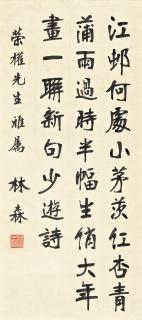 江邨何處小茅茨紅杏青
蒲雨過時半幅生綃大年
畫一聯新句少游詩
榮權先生雅屬
林森